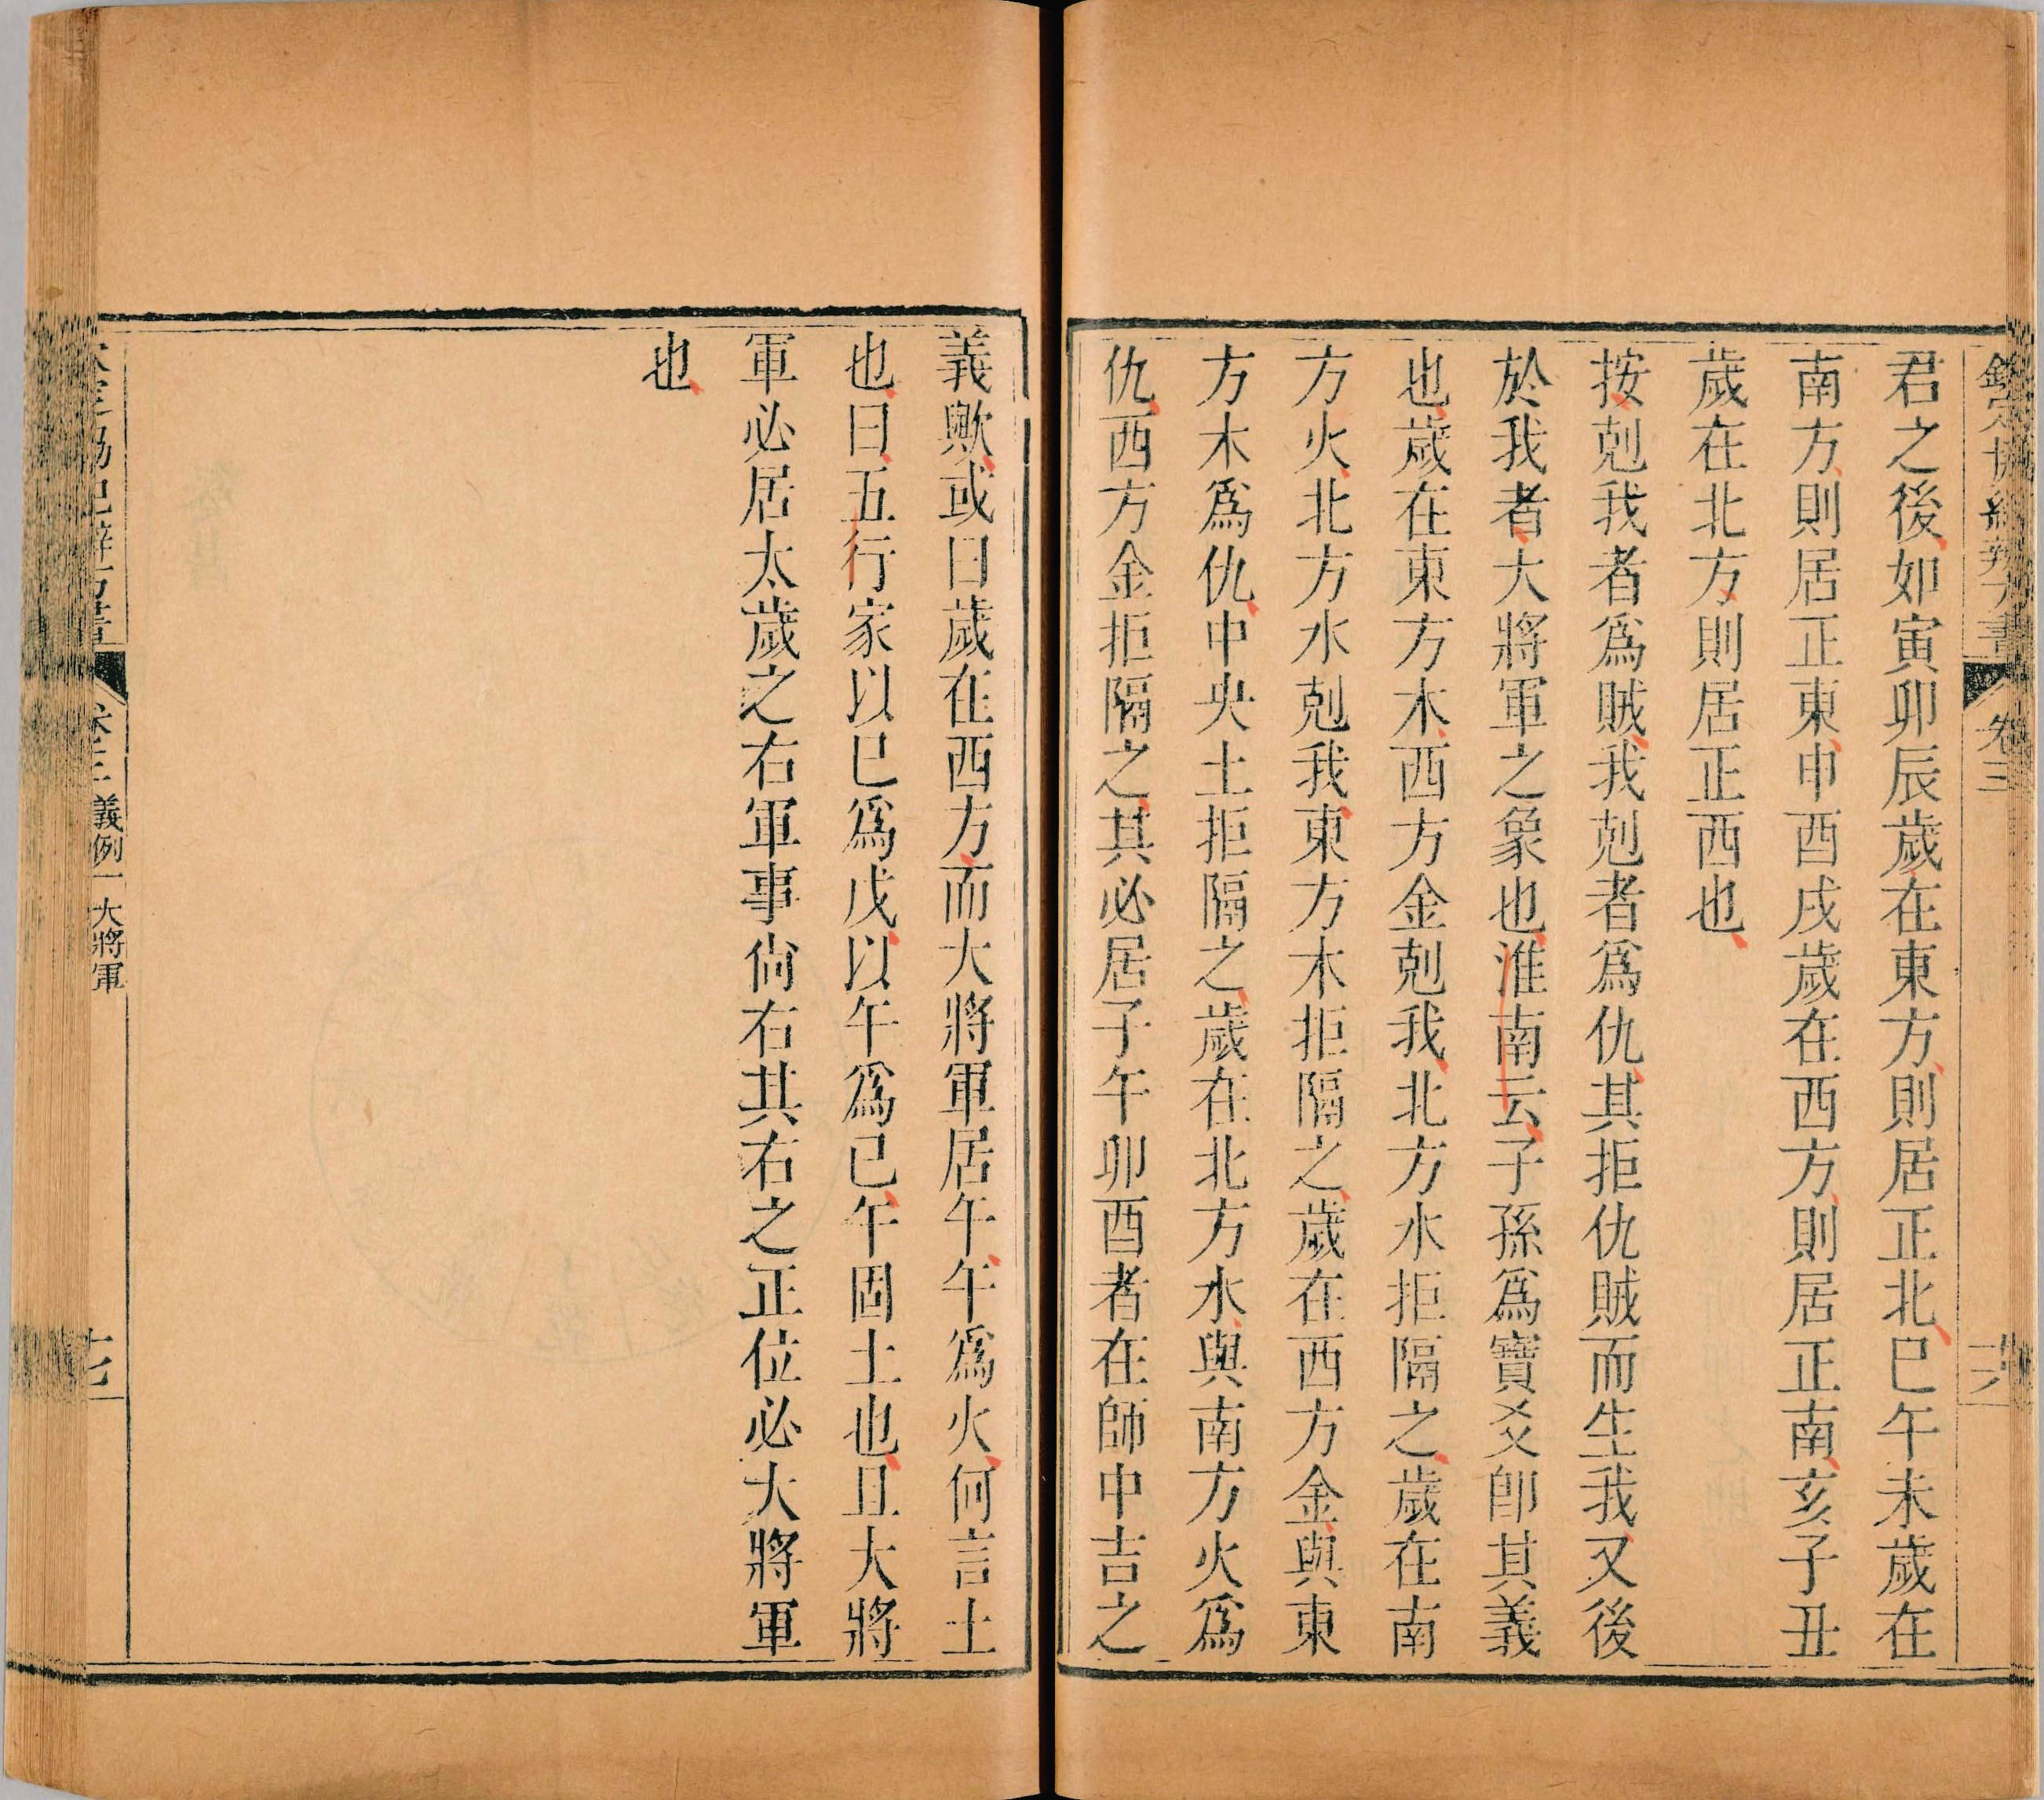 君之後如寅卯辰歲在東方則居正北巳午未歲在
南方則居正東申酉戌歲在西方則居正南亥子丑
歲在北方則居正西也
按剋我者爲賊我剋者爲仇其拒仇賊而生我又後
於我者大將軍之象也淮南云子孫爲寶爻卽其義
也歲在東方木西方金剋我北方水拒隔之歲在南
方火北方水剋我東方木拒隔之歲在西方金與東
方木爲仇中央土拒隔之歲在北方水與南方火爲
仇西方金拒隔之其必居子午卯酉者在師中吉之
義歟或曰歲在西方而大將軍居午午爲火何言土
也曰五行家以巳爲戊以午爲己午固土也且大將
軍必居太歲之右軍事尙右其右之正位必大將軍
也
卷三 義例一 大將軍